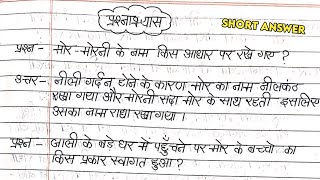 प्रश्नाभ्यास
SHORT ANSWER
प्रश्न - मोर-मोरनी के नाम किस आधार पर रखे गए ?
उत्तर- नीली गर्दन होने के कारण मोर का नाम नीलकंठ
रखा गया और मोरनी सदा मोर के साथ रहती इसलिए
उसका नाम राधा रखा गया ।
प्रश्न - जाली के बड़े घर में पहुँचने पर मोर के बच्चो का
किस प्रकार स्वागत हुआ ?